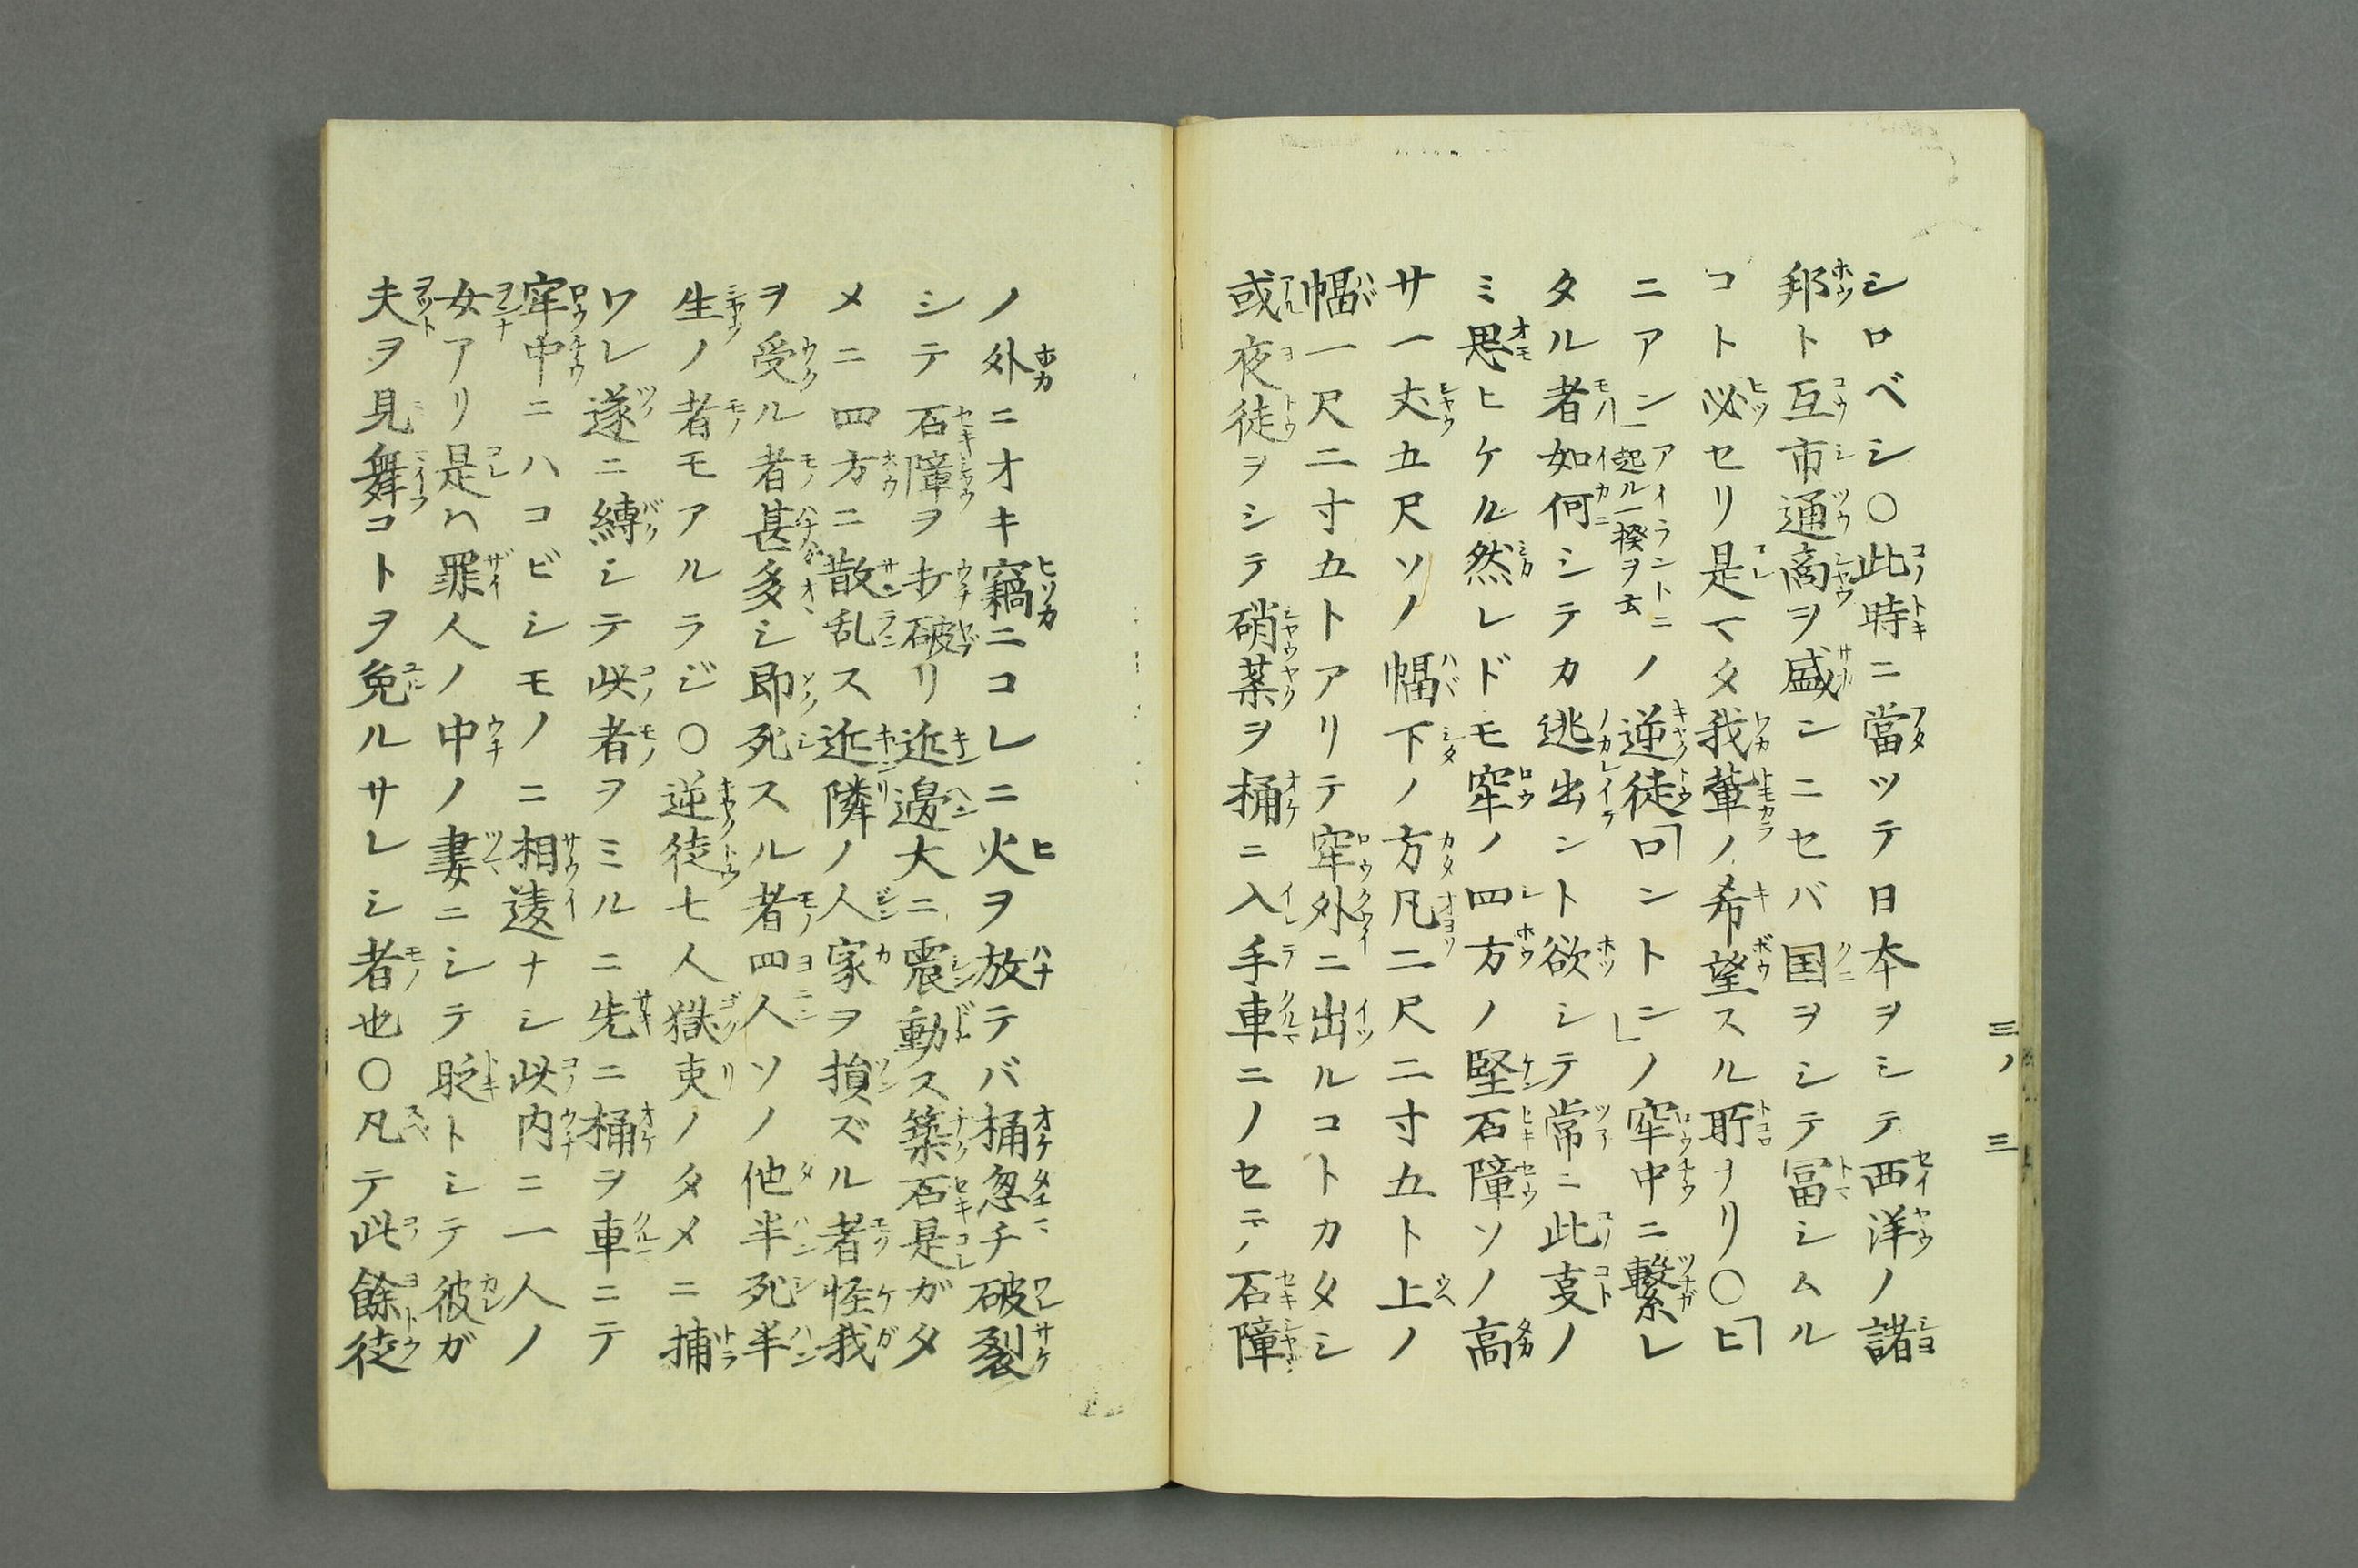 シロベシ〇此時ニ當ツテ日本ヲシテ西洋ノ諸
邦ト互市通商ヲ盛ンニセバ国ヲシテ冨シムル
コト必セリ是マタ我軰ノ希望スル所ナリ〇ヒ
ニアン一起ル一揆ヲ云アイラントニノ逆徒ロントンノ窂中ニ繋レ
タル者如何シテカ逃出ント欲シテ常ニ此支ノ
ミ思ヒケル然レドモ窂ノ四方ノ堅石障ソノ高
サ一丈五尺ソノ幅下ノ方凡二尺二寸五ト上ノ
幅一尺二寸五トアリテ窂外ニ出ルコトカタシ
或夜徒ヲシテ硝薬ヲ桶ニ入手車ニノセテ石障
ノ外ニオキ竊ニコレニ火ヲ放テバ桶忽チ破裂
シテ石障ヲ打破リ近邊大ニ震動ス築石是ガタ
メニ四方ニ散乱ス近隣ノ人家ヲ損ズル者怪我
ヲ受ル者甚多シ即死スル者四人ソノ他半死半
生ノ者モアルラジ〇逆徒七人獄吏ノタメニ捕
ワレ遂ニ縛シテ此者ヲミルニ先ニ桶ヲ車ニテ
窂中ニハコビシモノニ相違ナシ此内ニ一人ノ
女アリ是ハ罪人ノ中ノ妻ニシテ眨トシテ彼ガ
夫ヲ見舞コトヲ免ルサレシ者也〇凡テ此餘徒
三ノ三